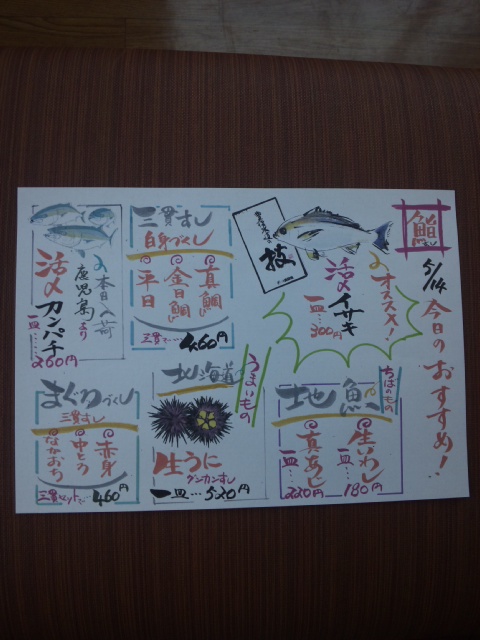 鮨
5/14 今日のおすすめ!
オススメ!
活〆イサキ
一皿…300円
技
三貫すし
白身づくし
真鯛
金目鯛
平目
三貫で…460円
本日入荷
鹿児島より
活〆カンパチ
一皿……260円
ちばのもの
地魚
生いわし
一皿…180円
真あじ
一皿…220円
うまいもの
北海道
生うに
グンカンすし
一皿…520円
まぐろづくし
三貫すし
赤身
中とろ
なかおち
三貫セットで…460円